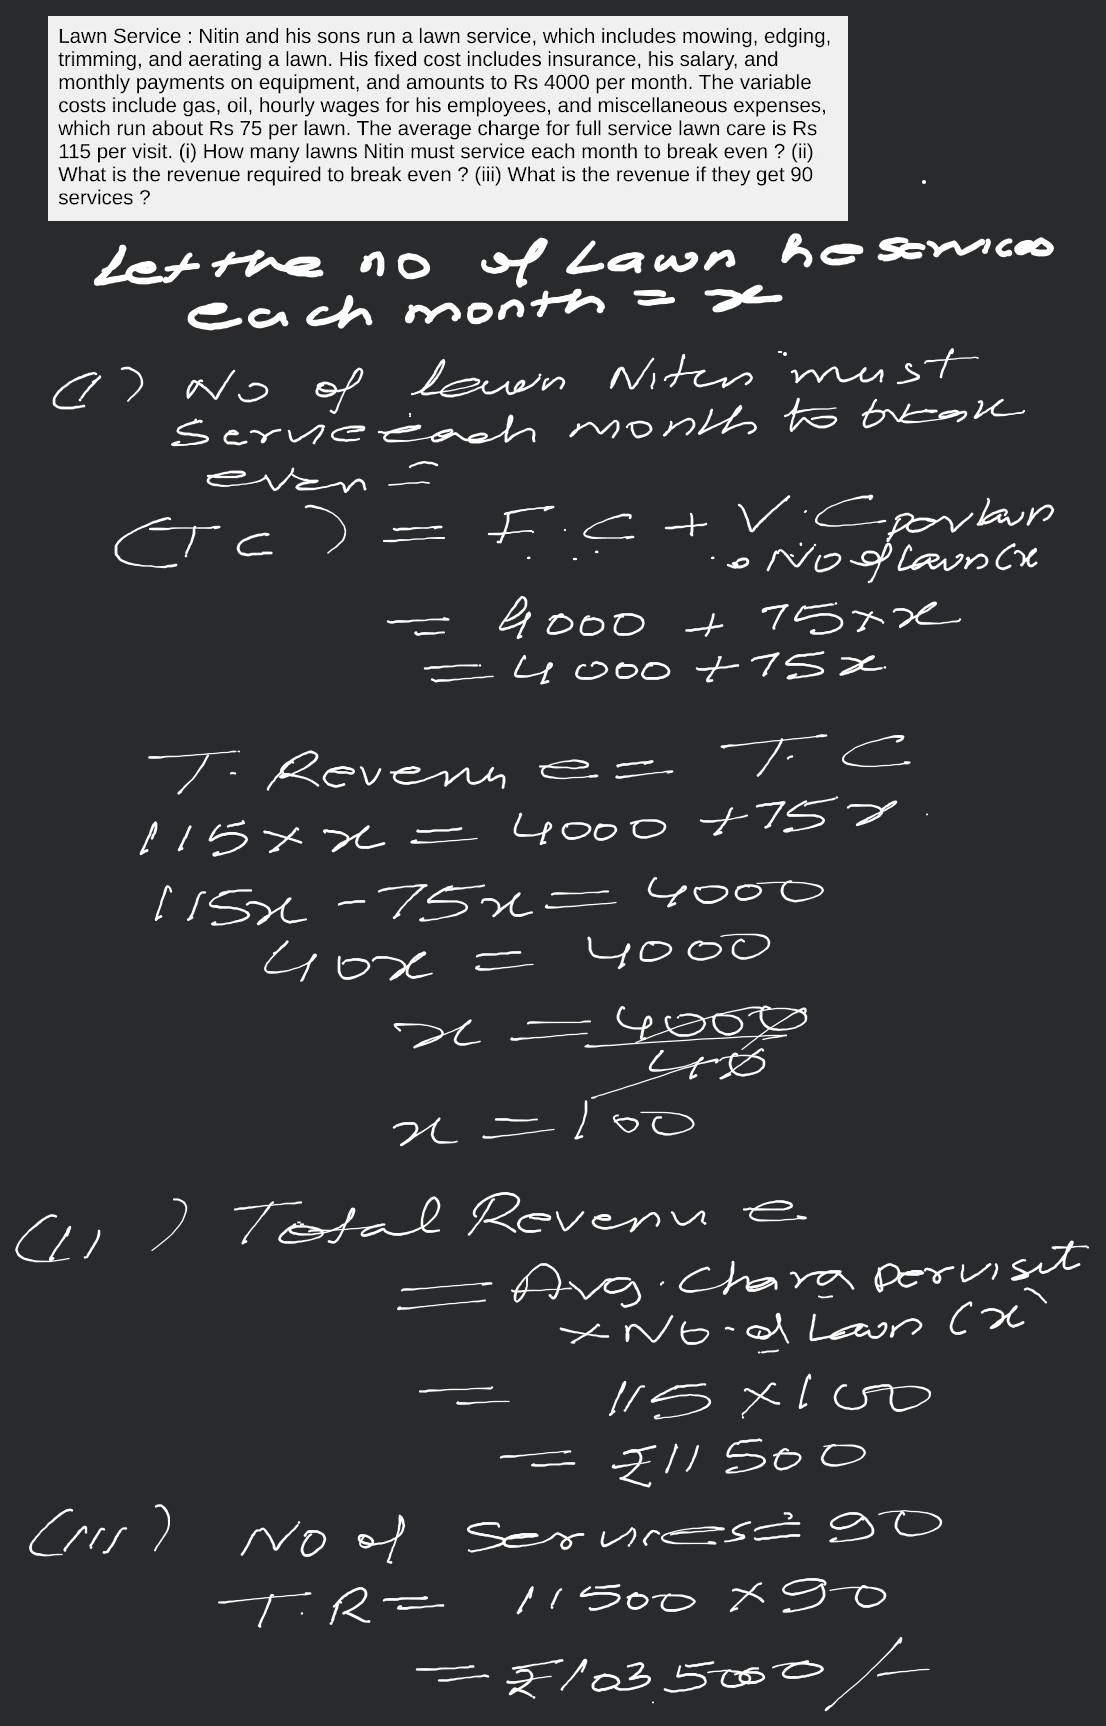 Lawn Service : Nitin and his sons run a lawn service, which includes mowing, edging,
trimming, and aerating a lawn. His fixed cost includes insurance, his salary, and
monthly payments on equipment, and amounts to Rs 4000 per month. The variable
costs include gas, oil, hourly wages for his employees, and miscellaneous expenses,
which run about Rs 75 per lawn. The average charge for full service lawn care is Rs
115 per visit. (i) How many lawns Nitin must service each month to break even ? (ii)
What is the revenue required to break even ? (iii) What is the revenue if they get 90
services ?
Let the no of Lawn he services
each month = x
(i) No of lawn Nitin must
Service each month to break
even =
(TC) = F.C + V.C per lawn
• No of Lawn (x
= 4000 + 75 × x
= 4000 + 75x
T. Revenue = T. C
115 × x = 4000 + 75x
115x - 75x = 4000
40x = 4000
x = 4000
40
x = 100
(ii) Total Revenue
= Avg. Charg per visit
× No. of Lawn (x)
= 115 × 100
= ₹11500
(iii) No of Services = 90
T.R = 11500 × 90
= ₹1035000/-